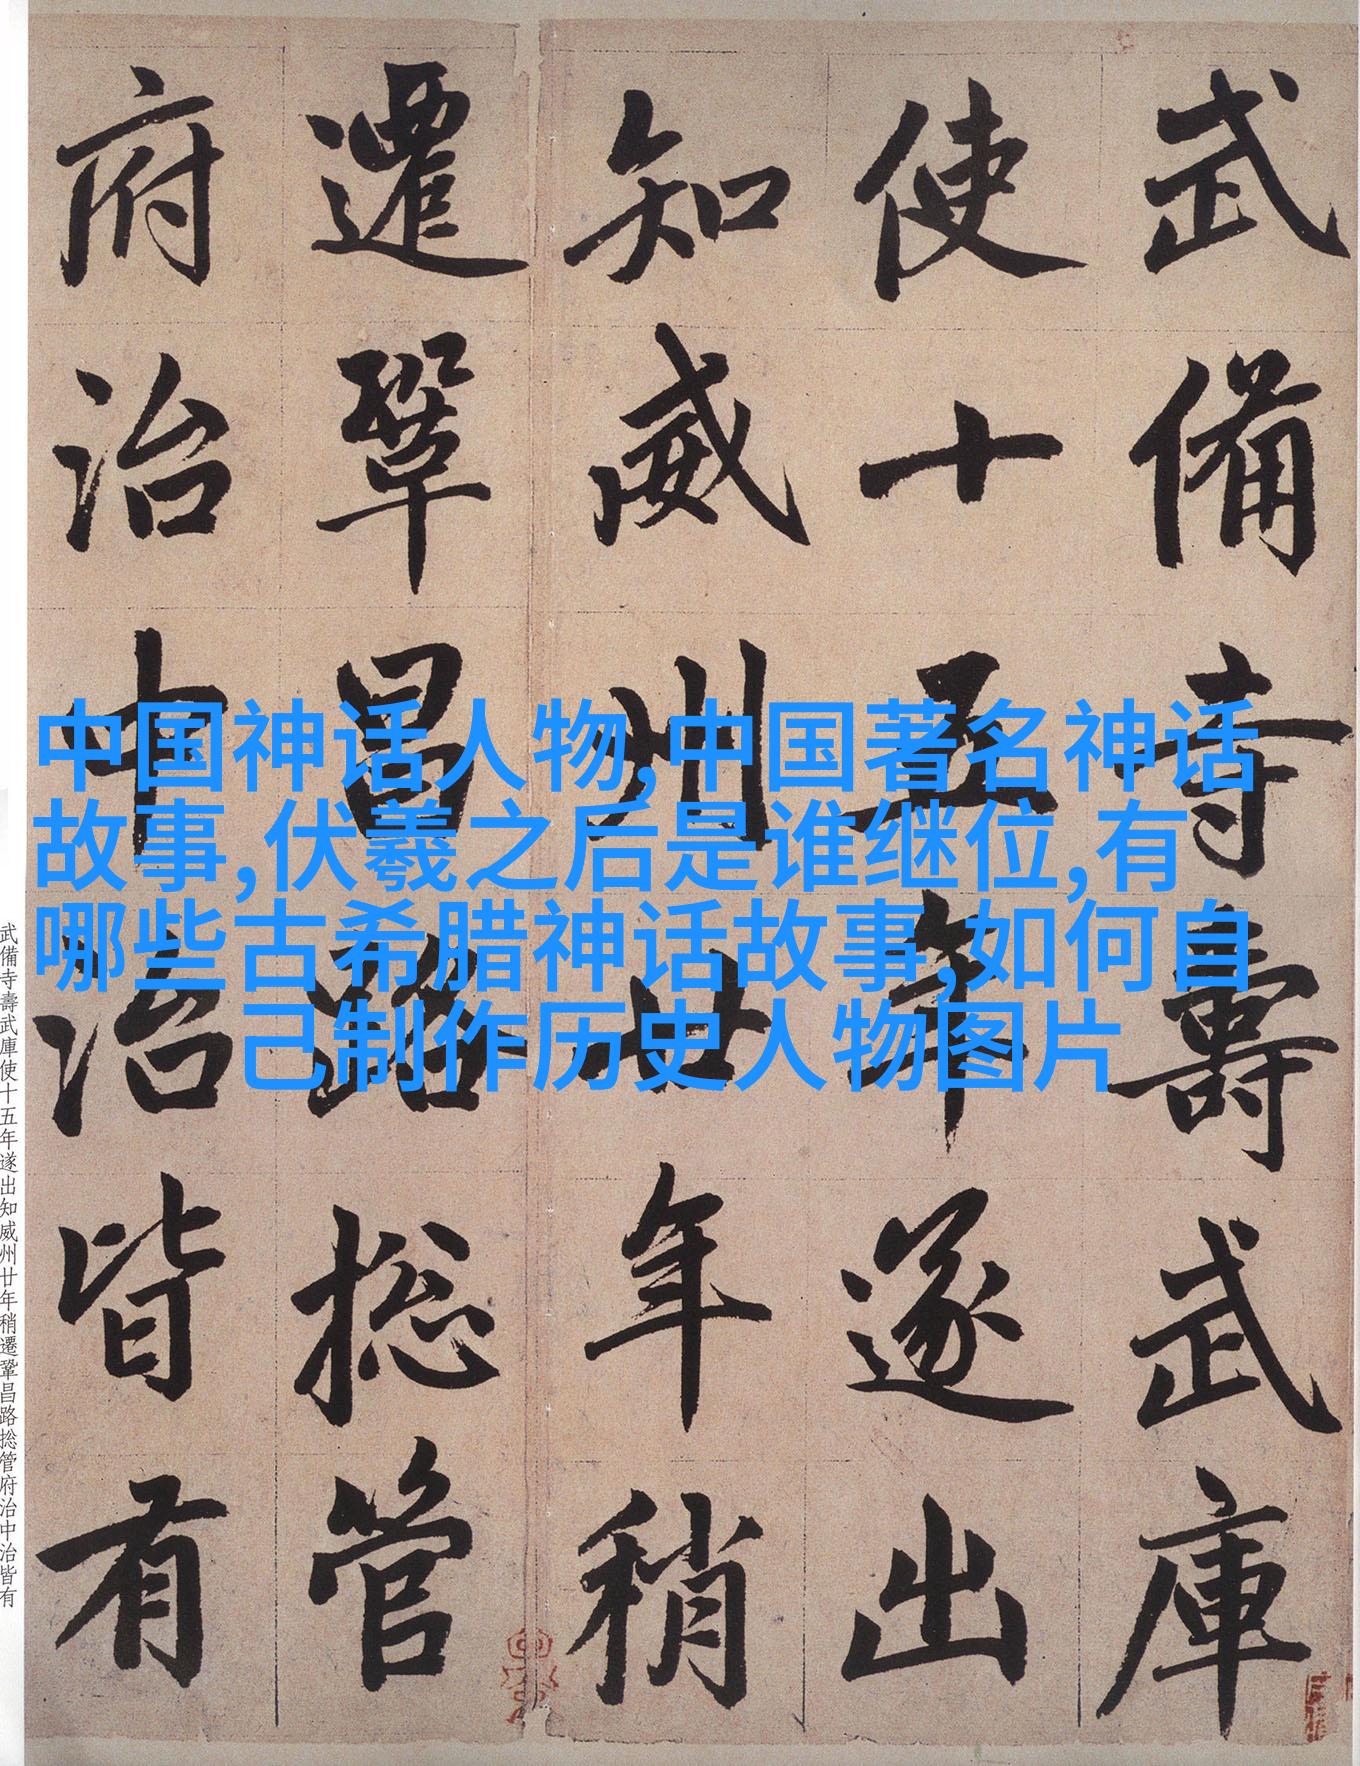 武備寺壽武庫
使十五年遂出
知威州廿年稍
遷鞏昌路捴管
府治中治皆有
中国神话人物,中国著名神话
故事,伏羲之后是谁继位,有
哪些古希腊神话故事,如何自
己制作历史人物图片
武備寺壽武庫使十五年遂出知威州廿年稍遷鞏昌路捴管府治中治皆有